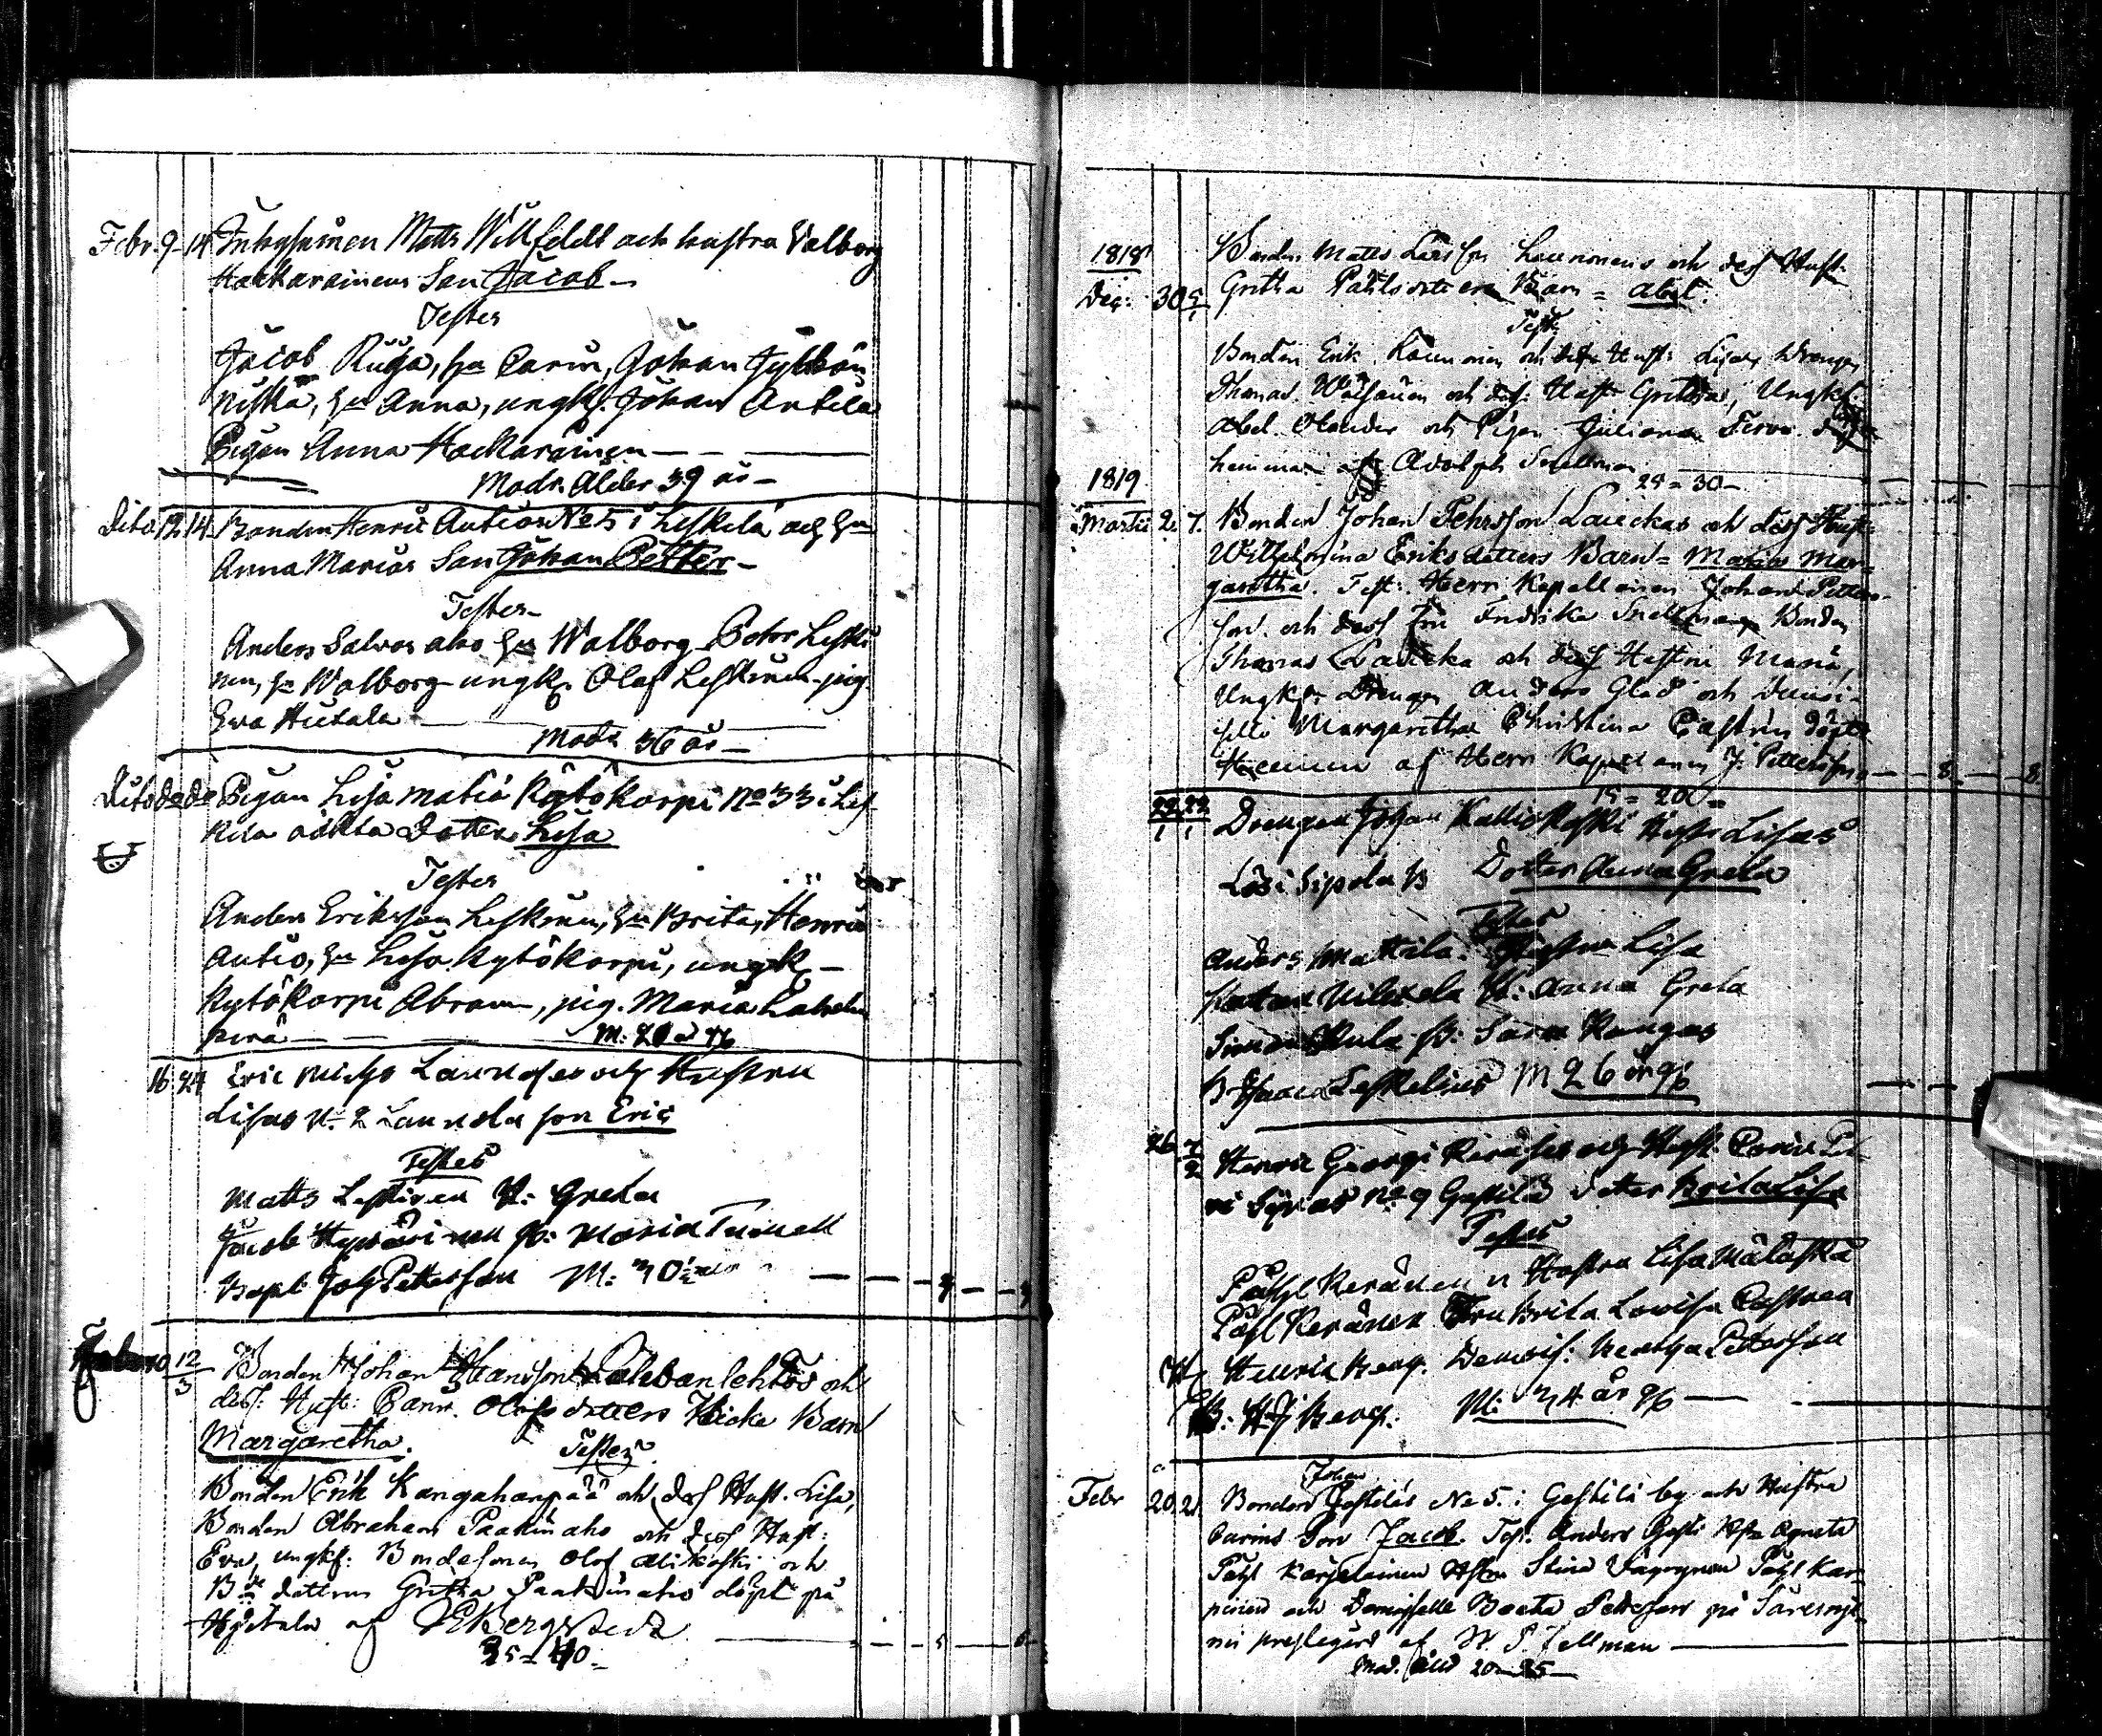 Febr. 9 14 Inhysingen Matts Willfeldt och hustru Valborg
Hackarainens Son Jacob
Testes
Jacob Ruha, hu Carin, Johan Jylhän
niska, hu Anna, ungk. Johan Antila
Pigan Anna Hackarainen
Modr. Ålder 39 år
Dito 12 14 Bonden Henric Autios No 5 i Leskelä och hu
Anna Marias Son Johan Petter
Testes
Anders Salvos aho hu Walborg Petter Leski
nen, hu Walborg ungk. Olof Leskinen pig.
Eva Hietala
Modr 36 år
Dito de de Pigan Lisa Matia Kytökorpi No 33 i Les
kelä oäkta Dotter Lisa
Testes
Anders Eriksson Leskinen, hu Brita, Henric
Autio, hu Lisa Kytökorpi, ungk
Kytökorpi Abram, pig. Maria
perä
16 24 Eric Laurosos och Hustru
Lisas N. 2 Laurola son Eric
Testes
Matts Leskinen H: Greta
Jacob Hyvärinen H: Maria
Bapt Joh Pettersson M: 30
12/3 Bonden Johan Hansson och
dess Hust: Carin Olofsdotters Barn
Margaretha.
Testes
Bonden Erik Kangaharju och dess Hust. Lisa,
Bonden Abraham Paakinaho och dess Hust:
Eva, ungk: Bondesonen Olof Alikoski och
Bde dottren Gretha Paakinaho döpt på
af Bergstedt
35 - 40
1818
Dec: 30 5/1 Bonden Matts Larsson Launonens och dess Hust.
Gretha Pålsdotters Barn = Abel.
Test:
Bonden Erik Launonen och dess Hust: Lisa, Drengen
Thomas Väisänen och dess Hustr Gretha, Ungk:
Abel Olander och Pigan Juliana
hemma af Adolph Snellman
24 - 30
1819
Martii 2. 7. Bonden Johan Pehrsson Lauckas och dess Hust:
Wilhelmina Eriksdotters Barn = Maria Mar=
garetha. Test: Herr Kapellanen Johan Petters-
son och dess Fru Fredrika Snellman Bonden
Thomas Laucka och dess Hustru Maria,
Ungk: Drengen Anders Glad och Demoi-
selle Margaretha Christina Castrén döpt
Hemma af Herr Kapellanen J. Pettersson 8 8
15 - 20
22/1 22/1 Drengen Johan Kallioskoski Hustr Lisas
Lös i Sipola b Dotter Anna Greta
Testes
Anders Mattila Hustru Lisa
Uilela H: Anna Greta
Simon B: Sara Kangas
B Leskelius M 26 år 9/6
26 7/2 Henric Georgi Keräses och Hust: Carin
No 9 Gestilä dotter Brita Lisa
Testes
Påhl Keränen Hustru Lisa Mälaskä
Påhl Keränen Fru Brita Lovisa Castren
Henric Berg. Demois: Beata Pettersson
B. H. J. Berg. M: 34 år 9/6
Febr 20. 21 Bonden Johan Jestiläs No 5. i Gestilä by och Hustru
Carins Son Jacob. Test. Anders Hustr Agneta
Påhl Karjalainen Hustru Stina Påhl Kar
pinen och Demoiselle Beata Pettersson på Säresnie
mi prestegård af W. P. Zellman
Mod. åld 20 - 25